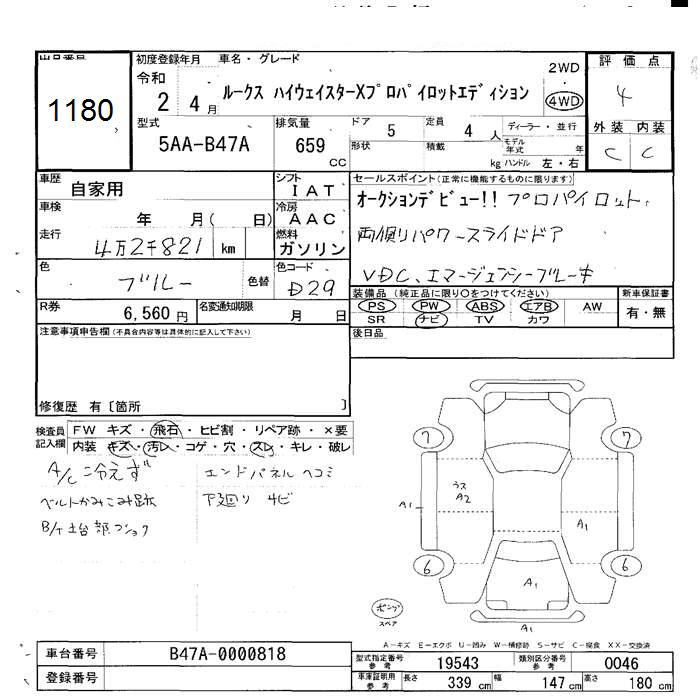 出品番号
1180
初度登録年月 車名・グレード
令和 2 4月
ルークス ハイウェイスターXプロパイロットエディション
2WD
4WD
評価点
4
外装 内装
C C
型式
5AA-B47A
排気量
659 CC
ドア 5
定員 4人
形状 積載 kg
ディーラー・並行
モデル年式 年
ハンドル 左・右
車歴 自家用
シフト IAT
車検 年 月( 日)
冷房 AAC
走行 4万2千821 km
燃料 ガソリン
色 ブルー 色替
色コード D29
R券 6,560円
名変通知期限 月 日
セールスポイント(正常に機能するものに限ります)
オークションデビュー!! プロパイロット、
両側リパワースライドドア
VDC、エマージェンシーブレーキ
装備品(純正品に限り○をつけてください)
PS PW ABS エアB AW
SR ナビ TV カワ
新車保証書
有・無
後日品
注意事項申告欄(不具合内容等は具体的に記入して下さい)
修復歴 有〔箇所 〕
検査員記入欄
FW キズ・飛石・ヒビ割・リペア跡・×要
内装 キズ・汚レ・コゲ・穴・スレ・キレ・破レ
A/C 冷えず
エンドパネル ヘコミ
ベルトかみこみ跡
下廻り サビ
B/T土台部
7 7
A1
ウス
A2
A1
6 6
A1
A1
ポンプ
スペア
A-キズ E-エクボ U-凹み W-補修跡 S-サビ C-腐食 XX-交換済
車台番号 B47A-0000818
登録番号
型式指定番号 参考 19543
類別区分番号 参考 0046
車庫証明用 参考 長さ 339 cm 幅 147 cm 高さ 180 cm